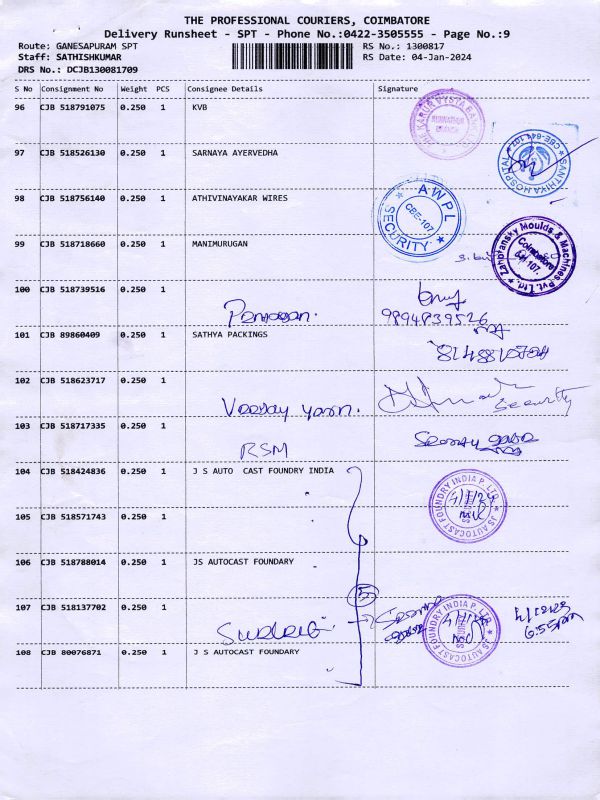 THE PROFESSIONAL COURIERS, COIMBATORE
Delivery Runsheet - SPT - Phone No.:0422-3505555 - Page No.:9
Route: GANESAPURAM SPT RS No.: 1300817
Staff: SATHISHKUMAR RS Date: 04-Jan-2024
DRS No.: DCJB130081709
S No Consignment No Weight PCS Consignee Details Signature
96 CJB 518791075 0.250 1 KVB
97 CJB 518526130 0.250 1 SARNAYA AYERVEDHA
SANTHIYA HOSPITAL
98 CJB 518756140 0.250 1 ATHIVINAYAKAR WIRES
AWPL
CBE-107
SECURITY
99 CJB 518718660 0.250 1 MANIMURUGAN
Moulds & Machines Pvt. Ltd.
Coimbatore
100 CJB 518739516 0.250 1
9894839526
101 CJB 89860409 0.250 1 SATHYA PACKINGS
102 CJB 518623717 0.250 1
yarn.
security
103 CJB 518717335 0.250 1
RSM
104 CJB 518424836 0.250 1 J S AUTO CAST FOUNDRY INDIA
JS AUTOCAST FOUNDRY INDIA P. LTD.
105 CJB 518571743 0.250 1
106 CJB 518788014 0.250 1 JS AUTOCAST FOUNDARY
5
107 CJB 518137702 0.250 1
JS AUTOCAST FOUNDRY INDIA P. LTD.
6.55pm
108 CJB 80076871 0.250 1 J S AUTOCAST FOUNDARY